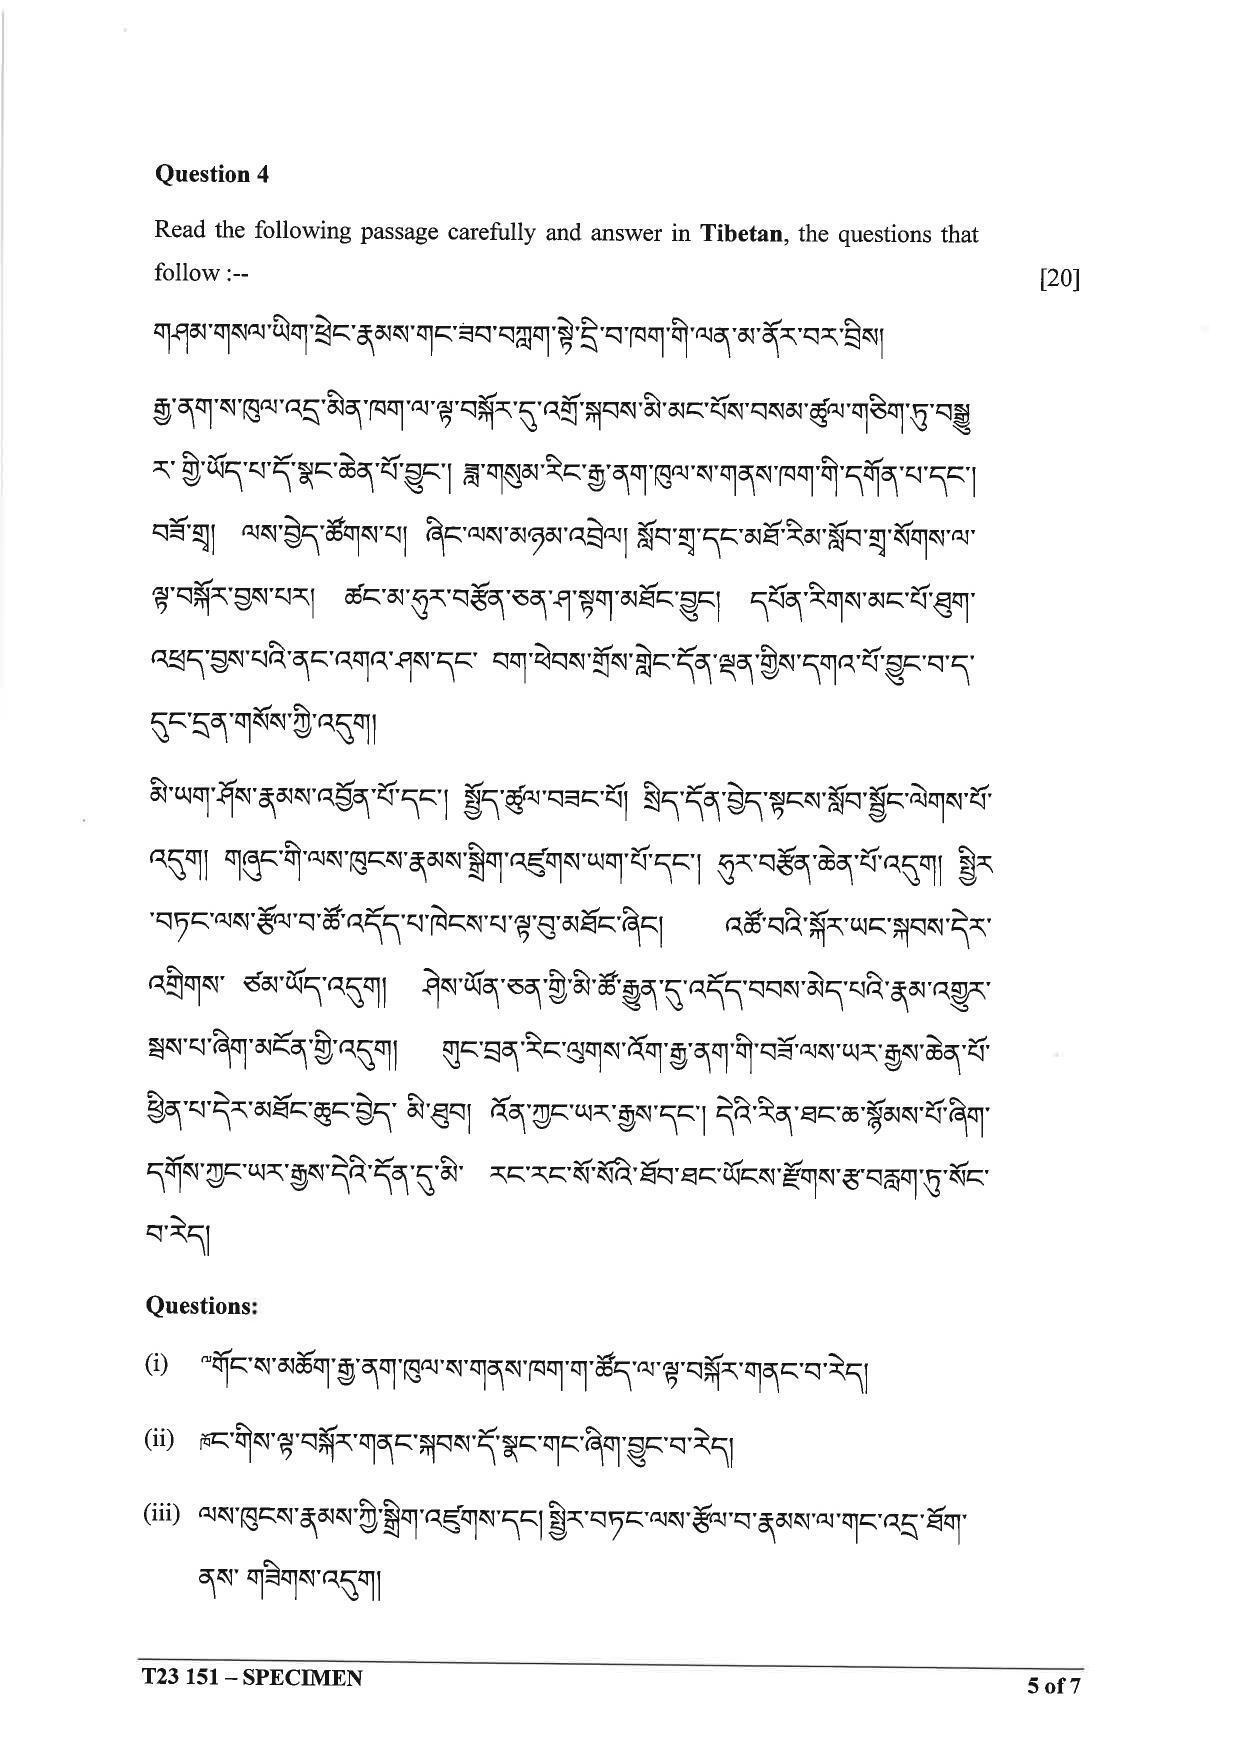 Question 4
Read the following passage carefully and answer in Tibetan, the questions that
follow :--
[20]
གཤམ་གསལ་ཡིག་ཕྲེང་རྣམས་གང་ཟབ་བཀླག་སྟེ་དྲི་བ་ཁག་གི་ལན་མ་ནོར་བར་བྲིས།
རྒྱ་ནག་ས་ཁུལ་འདྲ་མིན་ཁག་ལ་ལྟ་བསྐོར་དུ་འགྲོ་སྐབས་མི་མང་པོས་བསམ་ཚུལ་གཅིག་ཏུ་བསྒྱུ
ར་ གྱི་ཡོད་པ་དོ་སྣང་ཆེན་པོ་བྱུང་། ཟླ་གསུམ་རིང་རྒྱ་ནག་ཁུལ་ས་གནས་ཁག་གི་དགོན་པ་དང་།
བཟོ་གྲྭ། ལས་བྱེད་ཚོགས་པ། ཞིང་ལས་མཉམ་འབྲེལ། སློབ་གྲྭ་དང་མཐོ་རིམ་སློབ་གྲྭ་སོགས་ལ་
ལྟ་བསྐོར་བྱས་པར། ཚང་མ་ཧུར་བརྩོན་ཅན་ཤ་སྟག་མཐོང་བྱུང། དཔོན་རིགས་མང་པོ་ཐུག་
འཕྲད་བྱས་པའི་ནང་འགའ་ཤས་དང་ བག་ཕེབས་གྲོས་གླེང་དོན་ལྡན་གྱིས་དགའ་པོ་བྱུང་བ་ད་
དུང་དྲན་གསོས་ཀྱི་འདུག།
མི་ཡག་ཤོས་རྣམས་འབྱོན་པོ་དང་། སྤྱོད་ཚུལ་བཟང་པོ། སྲིད་དོན་བྱེད་སྟངས་སློབ་སྦྱོང་ལེགས་པོ་
འདུག། གཞུང་གི་ལས་ཁུངས་རྣམས་སྒྲིག་འཛུགས་ཡག་པོ་དང་། ཧུར་བརྩོན་ཆེན་པོ་འདུག། སྤྱིར
་བཏང་ལས་རྩོལ་བ་ཚོ་འདོད་པ་ཁེངས་པ་ལྟ་བུ་མཐོང་ཞིང། འཚོ་བའི་སྐོར་ཡང་སྐབས་དེར་
འགྲིགས་ ཙམ་ཡོད་འདུག། ཤེས་ཡོན་ཅན་གྱི་མི་ཚོ་རྒྱུན་དུ་འདོད་བབས་མེད་པའི་རྣམ་འགྱུར་
སྦས་པ་ཞིག་མངོན་གྱི་འདུག། གུང་བྲན་རིང་ལུགས་འོག་རྒྱ་ནག་གི་བཟོ་ལས་ཡར་རྒྱས་ཆེན་པོ་
ཕྱིན་པ་དེར་མཐོང་ཆུང་བྱེད་ མི་ཐུབ། འོན་ཀྱང་ཡར་རྒྱས་དང་། དེའི་རིན་ཐང་ཆ་སྙོམས་པོ་ཞིག་
དགོས་ཀྱང་ཡར་རྒྱས་དེའི་དོན་དུ་མི་ རང་རང་སོ་སོའི་ཐོབ་ཐང་ཡོངས་རྫོགས་རྩ་བརླག་ཏུ་སོང་
བ་རེད།
Questions:
(i) ༸གོང་ས་མཆོག་རྒྱ་ནག་ཁུལ་ས་གནས་ཁག་ག་ཚོད་ལ་ལྟ་བསྐོར་གནང་བ་རེད།
(ii) ཁོང་གིས་ལྟ་བསྐོར་གནང་སྐབས་དོ་སྣང་གང་ཞིག་བྱུང་བ་རེད།
(iii) ལས་ཁུངས་རྣམས་ཀྱི་སྒྲིག་འཛུགས་དང། སྤྱིར་བཏང་ལས་རྩོལ་བ་རྣམས་ལ་གང་འདྲ་ཐོག་
ནས་ གཟིགས་འདུག།
T23 151 – SPECIMEN
5 of 7